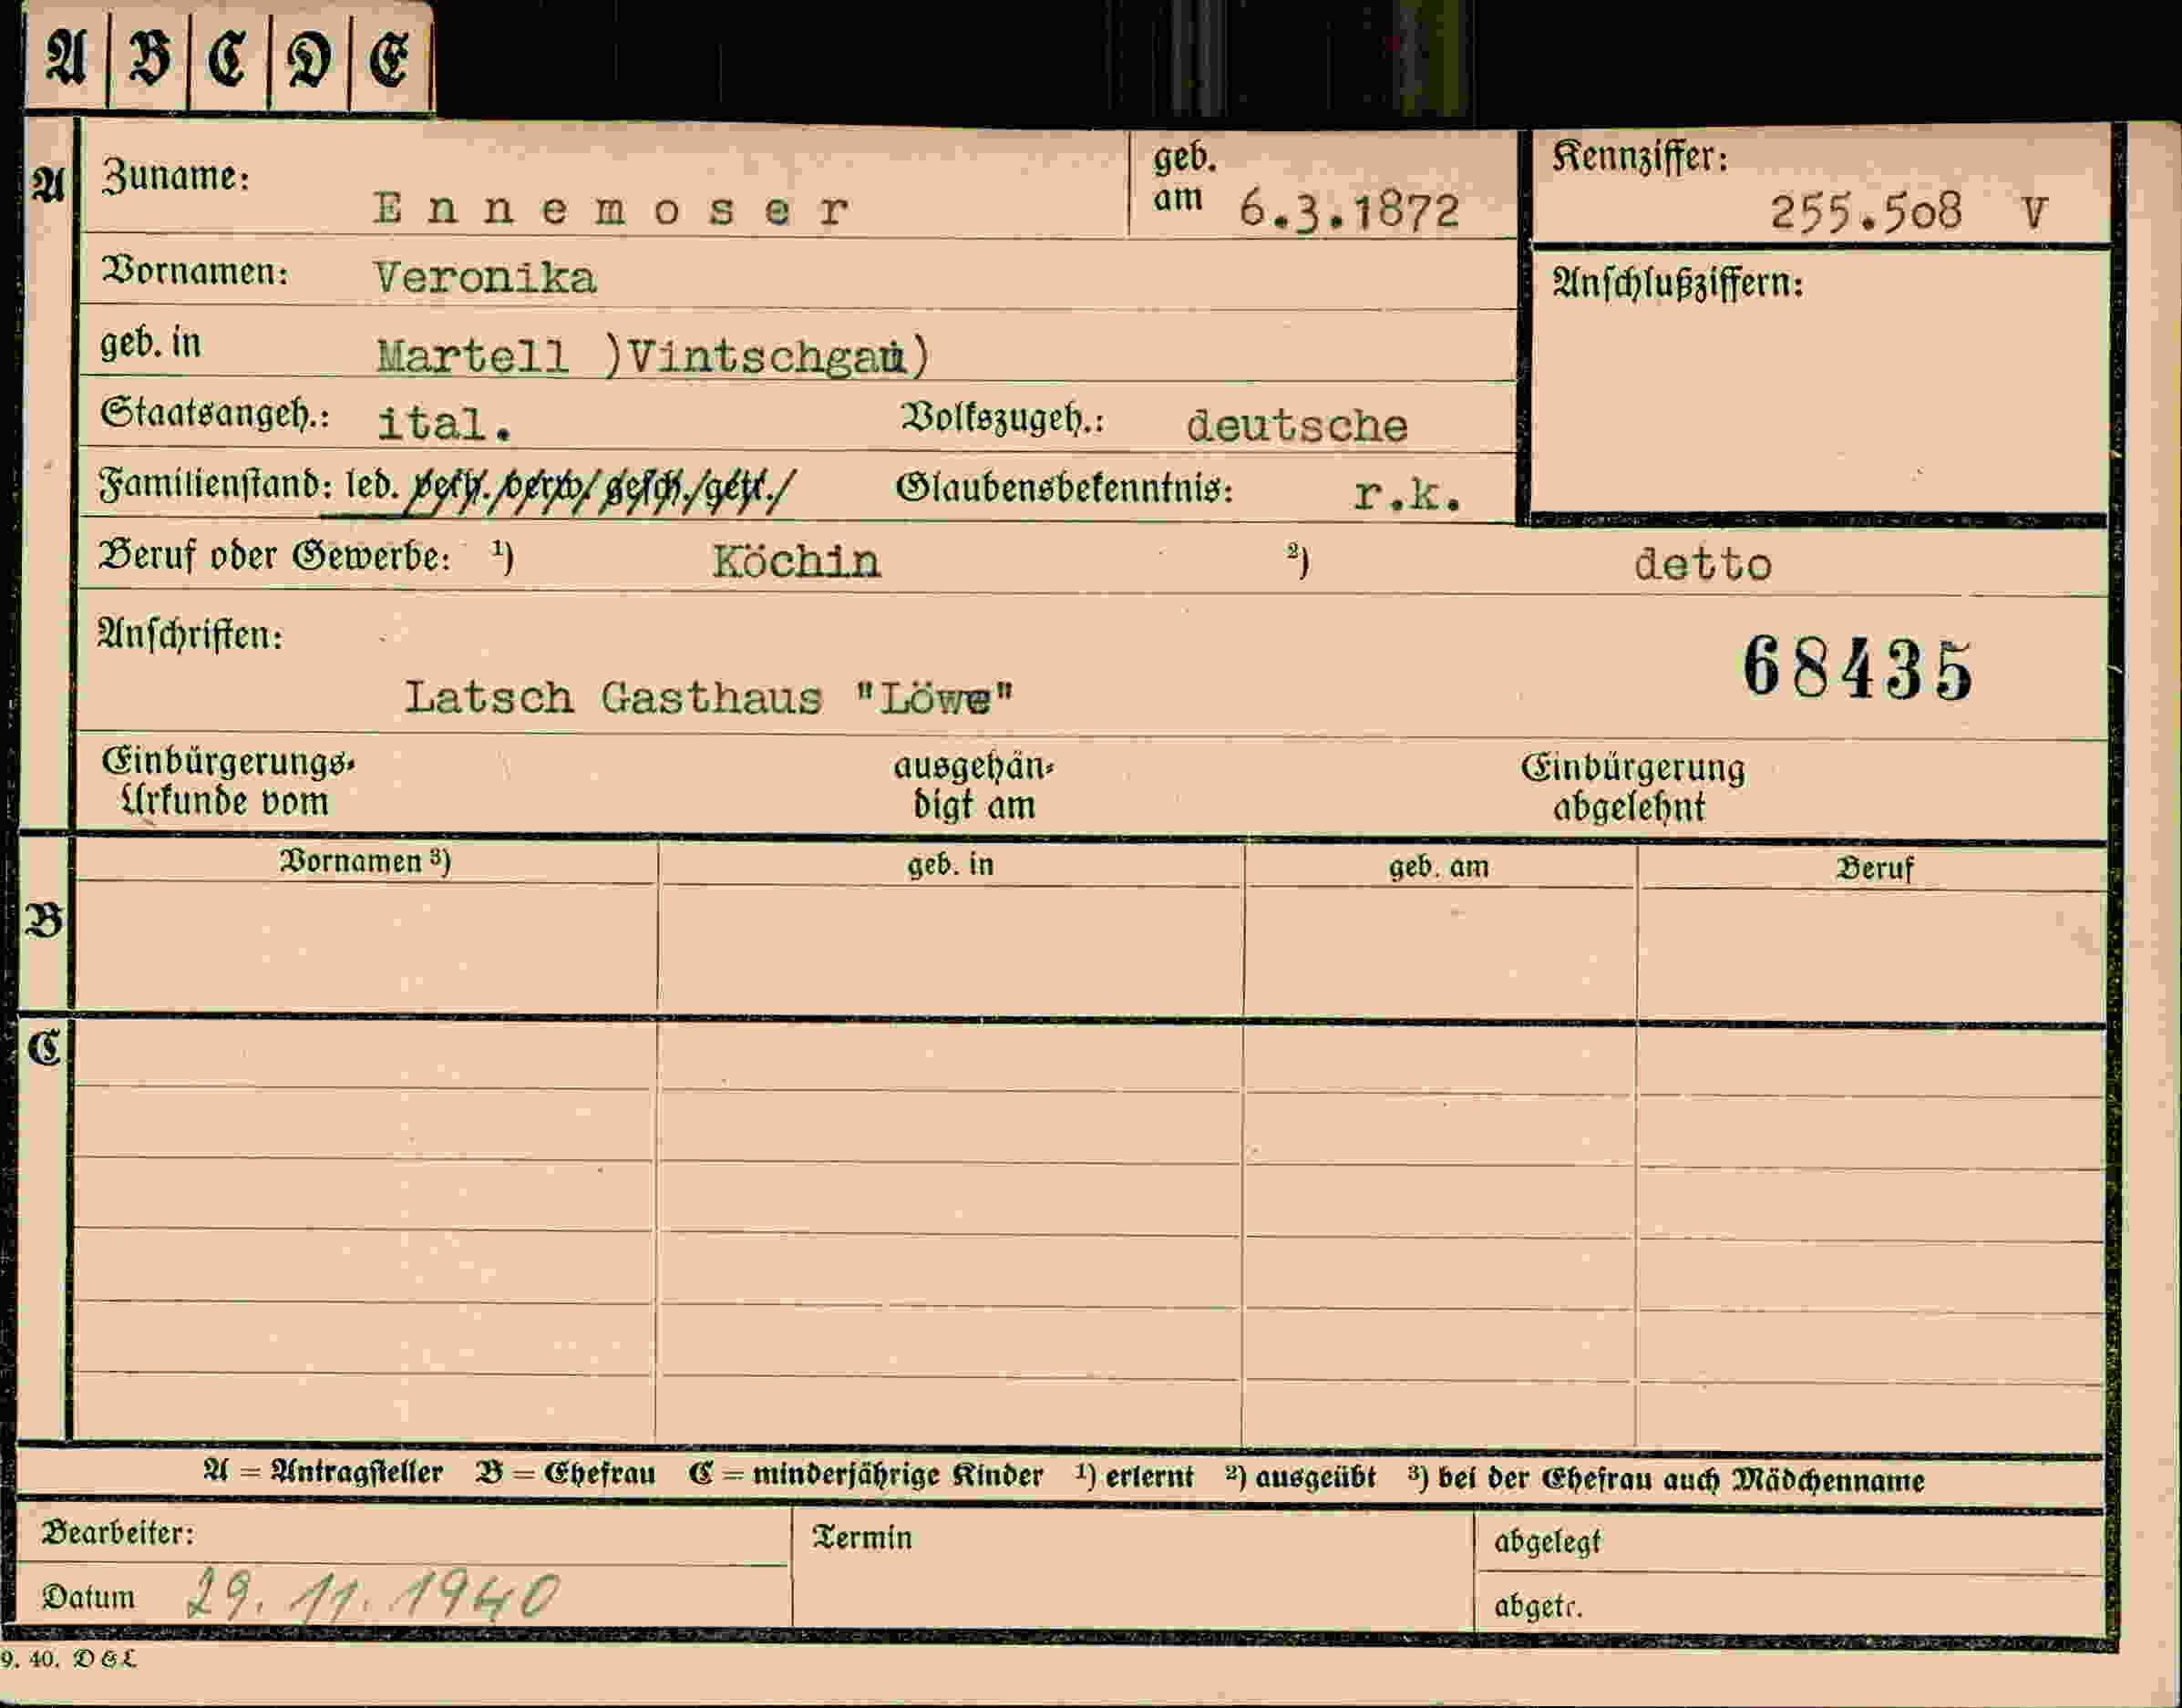 A B C D E
A Zuname: Ennemoser geb. am 6.3.1872 Kennziffer: 255.508 V
Vornamen: Veronika Anschlußziffern:
geb. in Martell )Vintschgau)
Staatsangeh.: ital. Volkszugeh.: deutsche
Familienstand: led. verh./verw./gesch./getr./ Glaubensbekenntnis: r.k.
Beruf oder Gewerbe: ¹) Köchin ²) detto
Anschriften: 68435
Latsch Gasthaus "Löwe"
Einbürgerungs- ausgehän- Einbürgerung
Urkunde vom digt am abgelehnt
Vornamen ³) geb. in geb. am Beruf
B
C
A = Antragsteller B = Ehefrau C = minderjährige Kinder ¹) erlernt ²) ausgeübt ³) bei der Ehefrau auch Mädchenname
Bearbeiter: Termin abgelegt
Datum 29. 11. 1940 abgetr.
9. 40. DGL